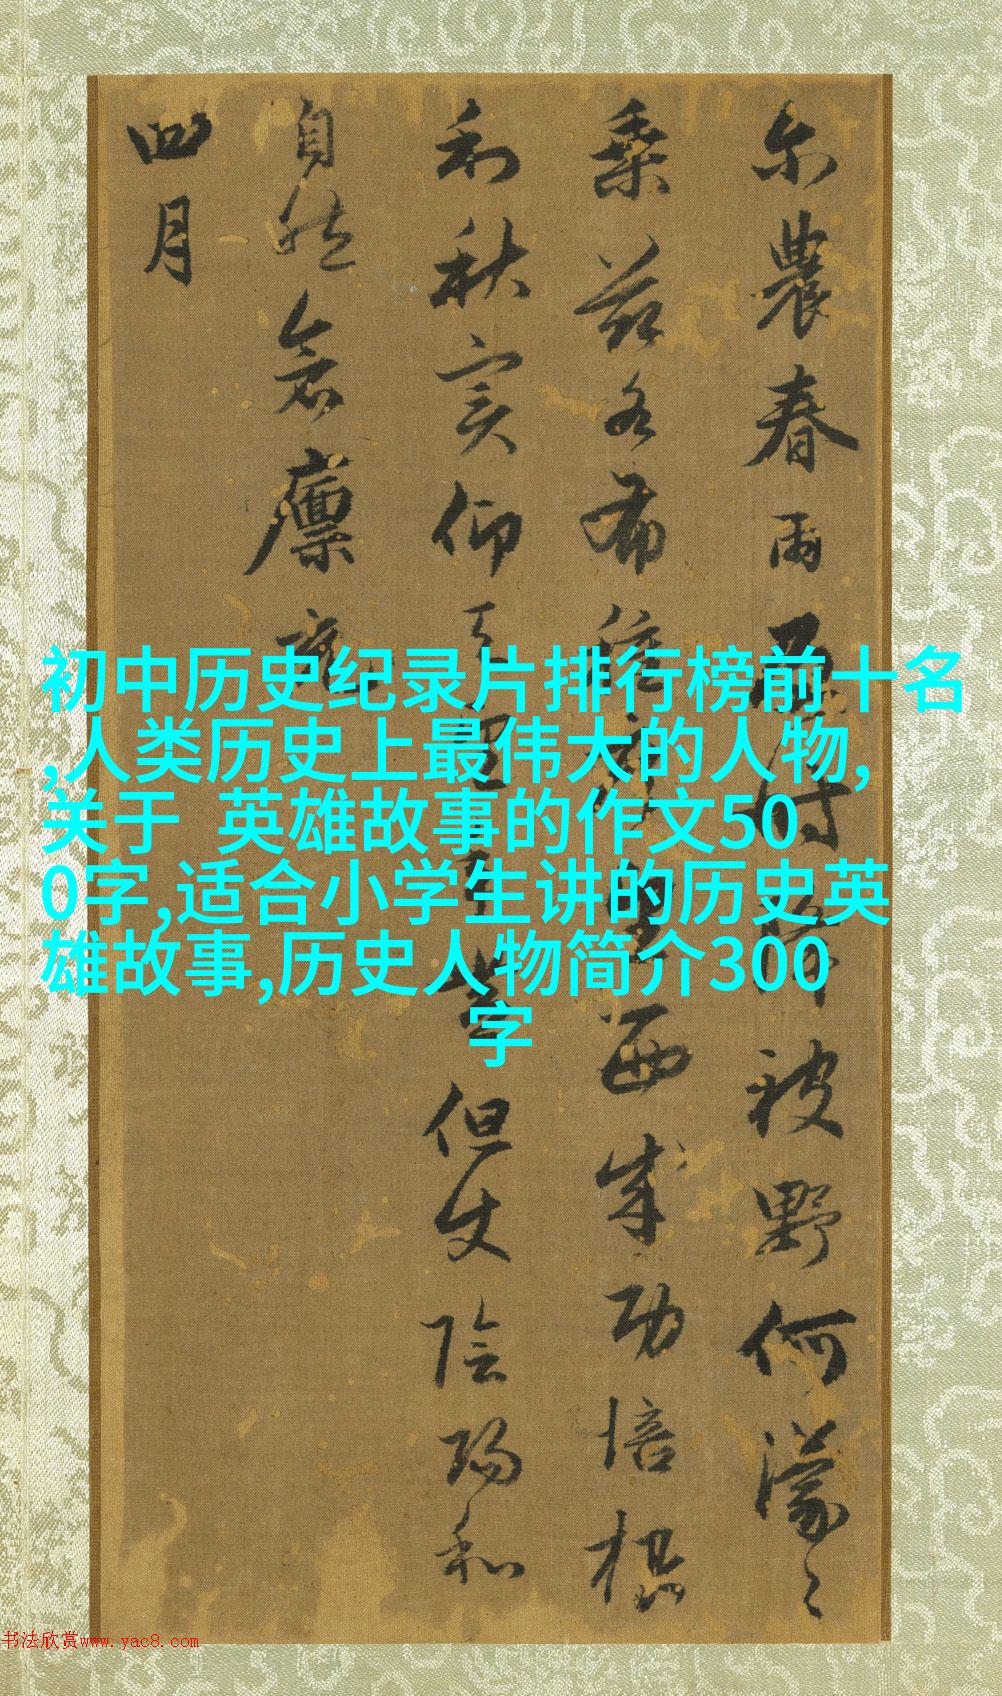 初中历史纪录片排行榜前十名
,人类历史上最伟大的人物,
关于 英雄故事的作文50
0字,适合小学生讲的历史英
雄故事,历史人物简介300
字
農春雨被野何濛〻
西成功倍
秋实仰但使陰陽和
自然倉廩
四月
书法欣赏www.yac8.com